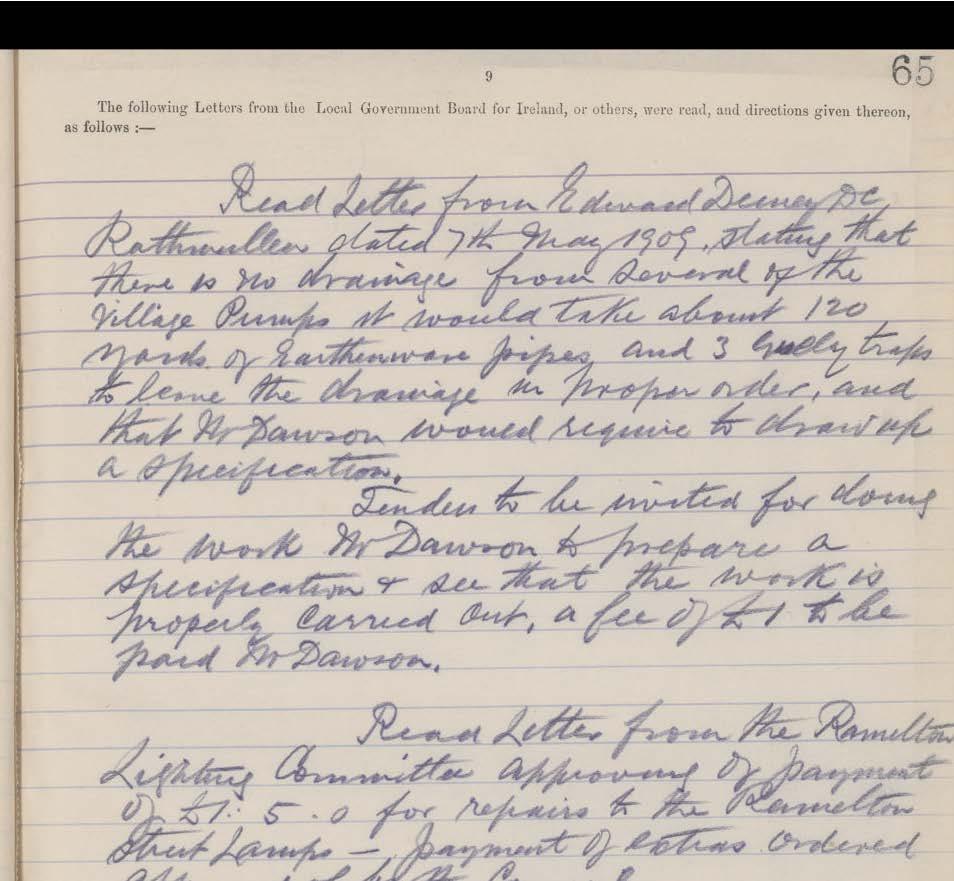 65
9
The following Letters from the Local Government Board for Ireland, or others, were read, and directions given thereon,
as follows :—
Read Letter from Edward Deeney DC
Rathmullen dated 7th May 1909, stating that
there is no drainage from several of the
Village Pumps it would take about 120
yards of Earthenware pipes, and 3 Gully traps
to leave the drainage in proper order, and
that Mr Dawson would require to draw up
a specification.
Tenders to be invited for doing
the work Mr Dawson to prepare a
specification & see that the work is
properly carried out, a fee of £1 to be
paid Mr Dawson.
Read Letter from the Ramelton
Lighting Committee approving of payment
of £1: 5 . 0 for repairs to the Ramelton
Street Lamps —, payment of extras ordered